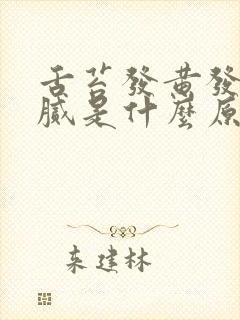 舌苔發黄發
膩是什麼原
來建林